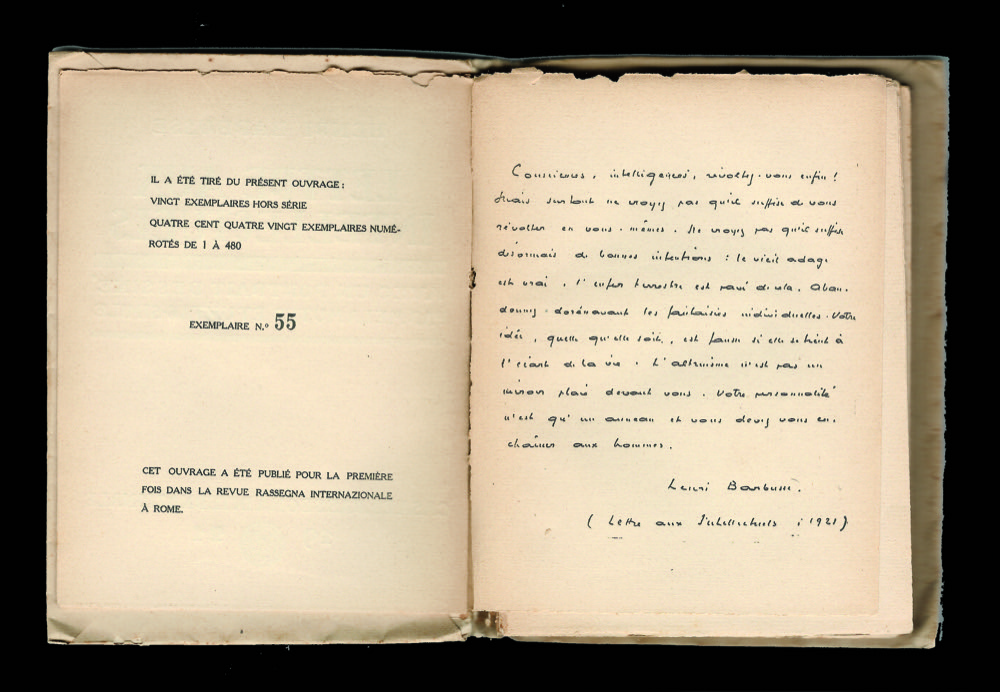 IL A ÉTÉ TIRÉ DU PRÉSENT OUVRAGE :
VINGT EXEMPLAIRES HORS SÉRIE
QUATRE CENT QUATRE VINGT EXEMPLAIRES NUMÉ-
ROTÉS DE 1 À 480
EXEMPLAIRE N.º 55
CET OUVRAGE A ÉTÉ PUBLIÉ POUR LA PREMIÈRE
FOIS DANS LA REVUE RASSEGNA INTERNAZIONALE
À ROME.
Consciences, intelligences, révoltez-vous enfin !
Mais surtout ne croyez pas qu'il suffise de vous
révolter en vous-mêmes. Ne croyez pas qu'il suffise
désormais de bonnes intentions : le vieil adage
est vrai, l'enfer terrestre est pavé de cela. Aban-
donnez dorénavant les fantaisies individuelles. Votre
idée, quelle qu'elle soit, est fausse si elle se tient à
l'écart de la vie. L'altruisme n'est pas un
miroir placé devant vous. Votre personnalité
n'est qu'un anneau et vous devez vous en-
chaîner aux hommes.
Henri Barbusse.
( Lettre aux Intellectuels ; 1921 )